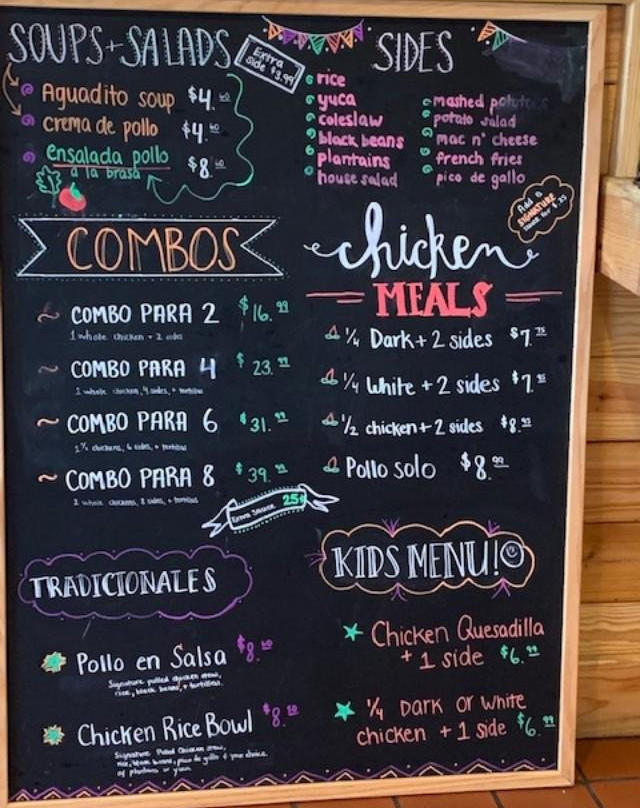 SOUPS + SALADS
Aguadito soup $4.
crema de pollo $4.
ensalada pollo $8.
a la brasa
Extra side $3.99
SIDES
rice
yuca
coleslaw
black beans
plantains
house salad
mashed potatoes
potato salad
mac n' cheese
french fries
pico de gallo
Add a
SIGNATURE
COMBOS
COMBO PARA 2 $16.99
1 whole chicken + 2 sides
COMBO PARA 4 $23.99
1 whole chicken, 4 sides, + tortillas
COMBO PARA 6 $31.99
1 ½ chickens, 6 sides, + tortillas
COMBO PARA 8 $39.99
2 whole chickens, 8 sides, + tortillas
Extra Sauce 25¢
chicken
MEALS
¼ Dark + 2 sides $7.75
¼ White + 2 sides $7.
½ chicken + 2 sides $8.
Pollo solo $8.
TRADICIONALES
Pollo en Salsa $8.
Signature pulled chicken stew,
rice, black beans, + tortillas.
Chicken Rice Bowl $8.
Signature Pulled Chicken stew,
rice, black beans, pico de gallo & your choice
of plantains or yuca
KIDS MENU!
Chicken Quesadilla
+ 1 side $6.99
¼ Dark or white
chicken + 1 side $6.99